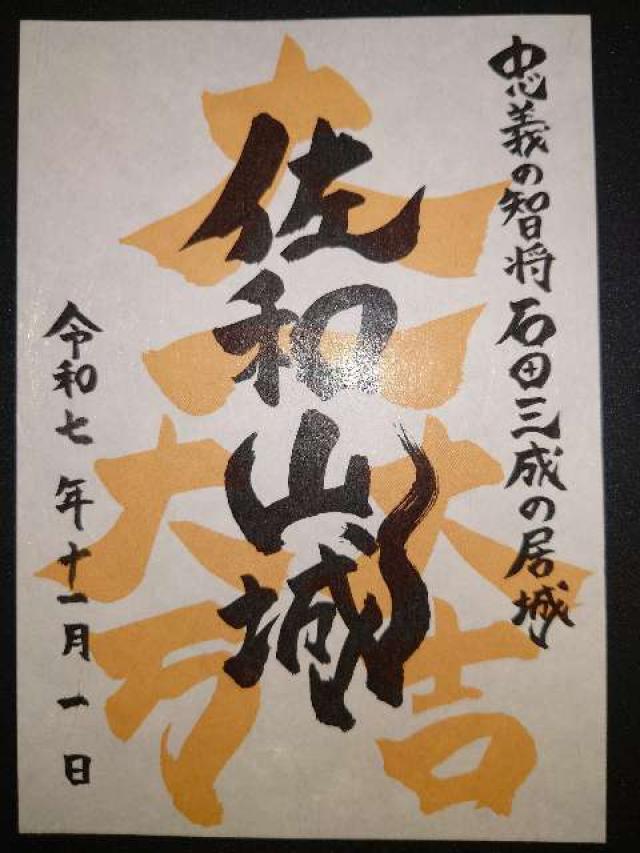 忠義の智将 石田三成の居城
佐和山城
大一大万大吉
令和七年十一月一日